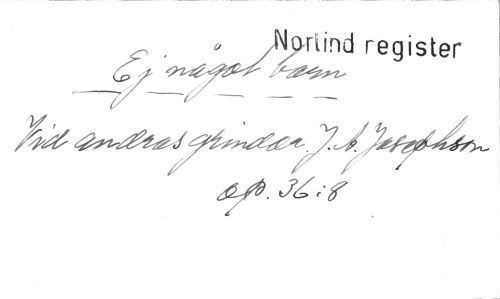 Norlind register
Ej något barn
Vid andras grindar. J. A. Josephson
op. 36:8